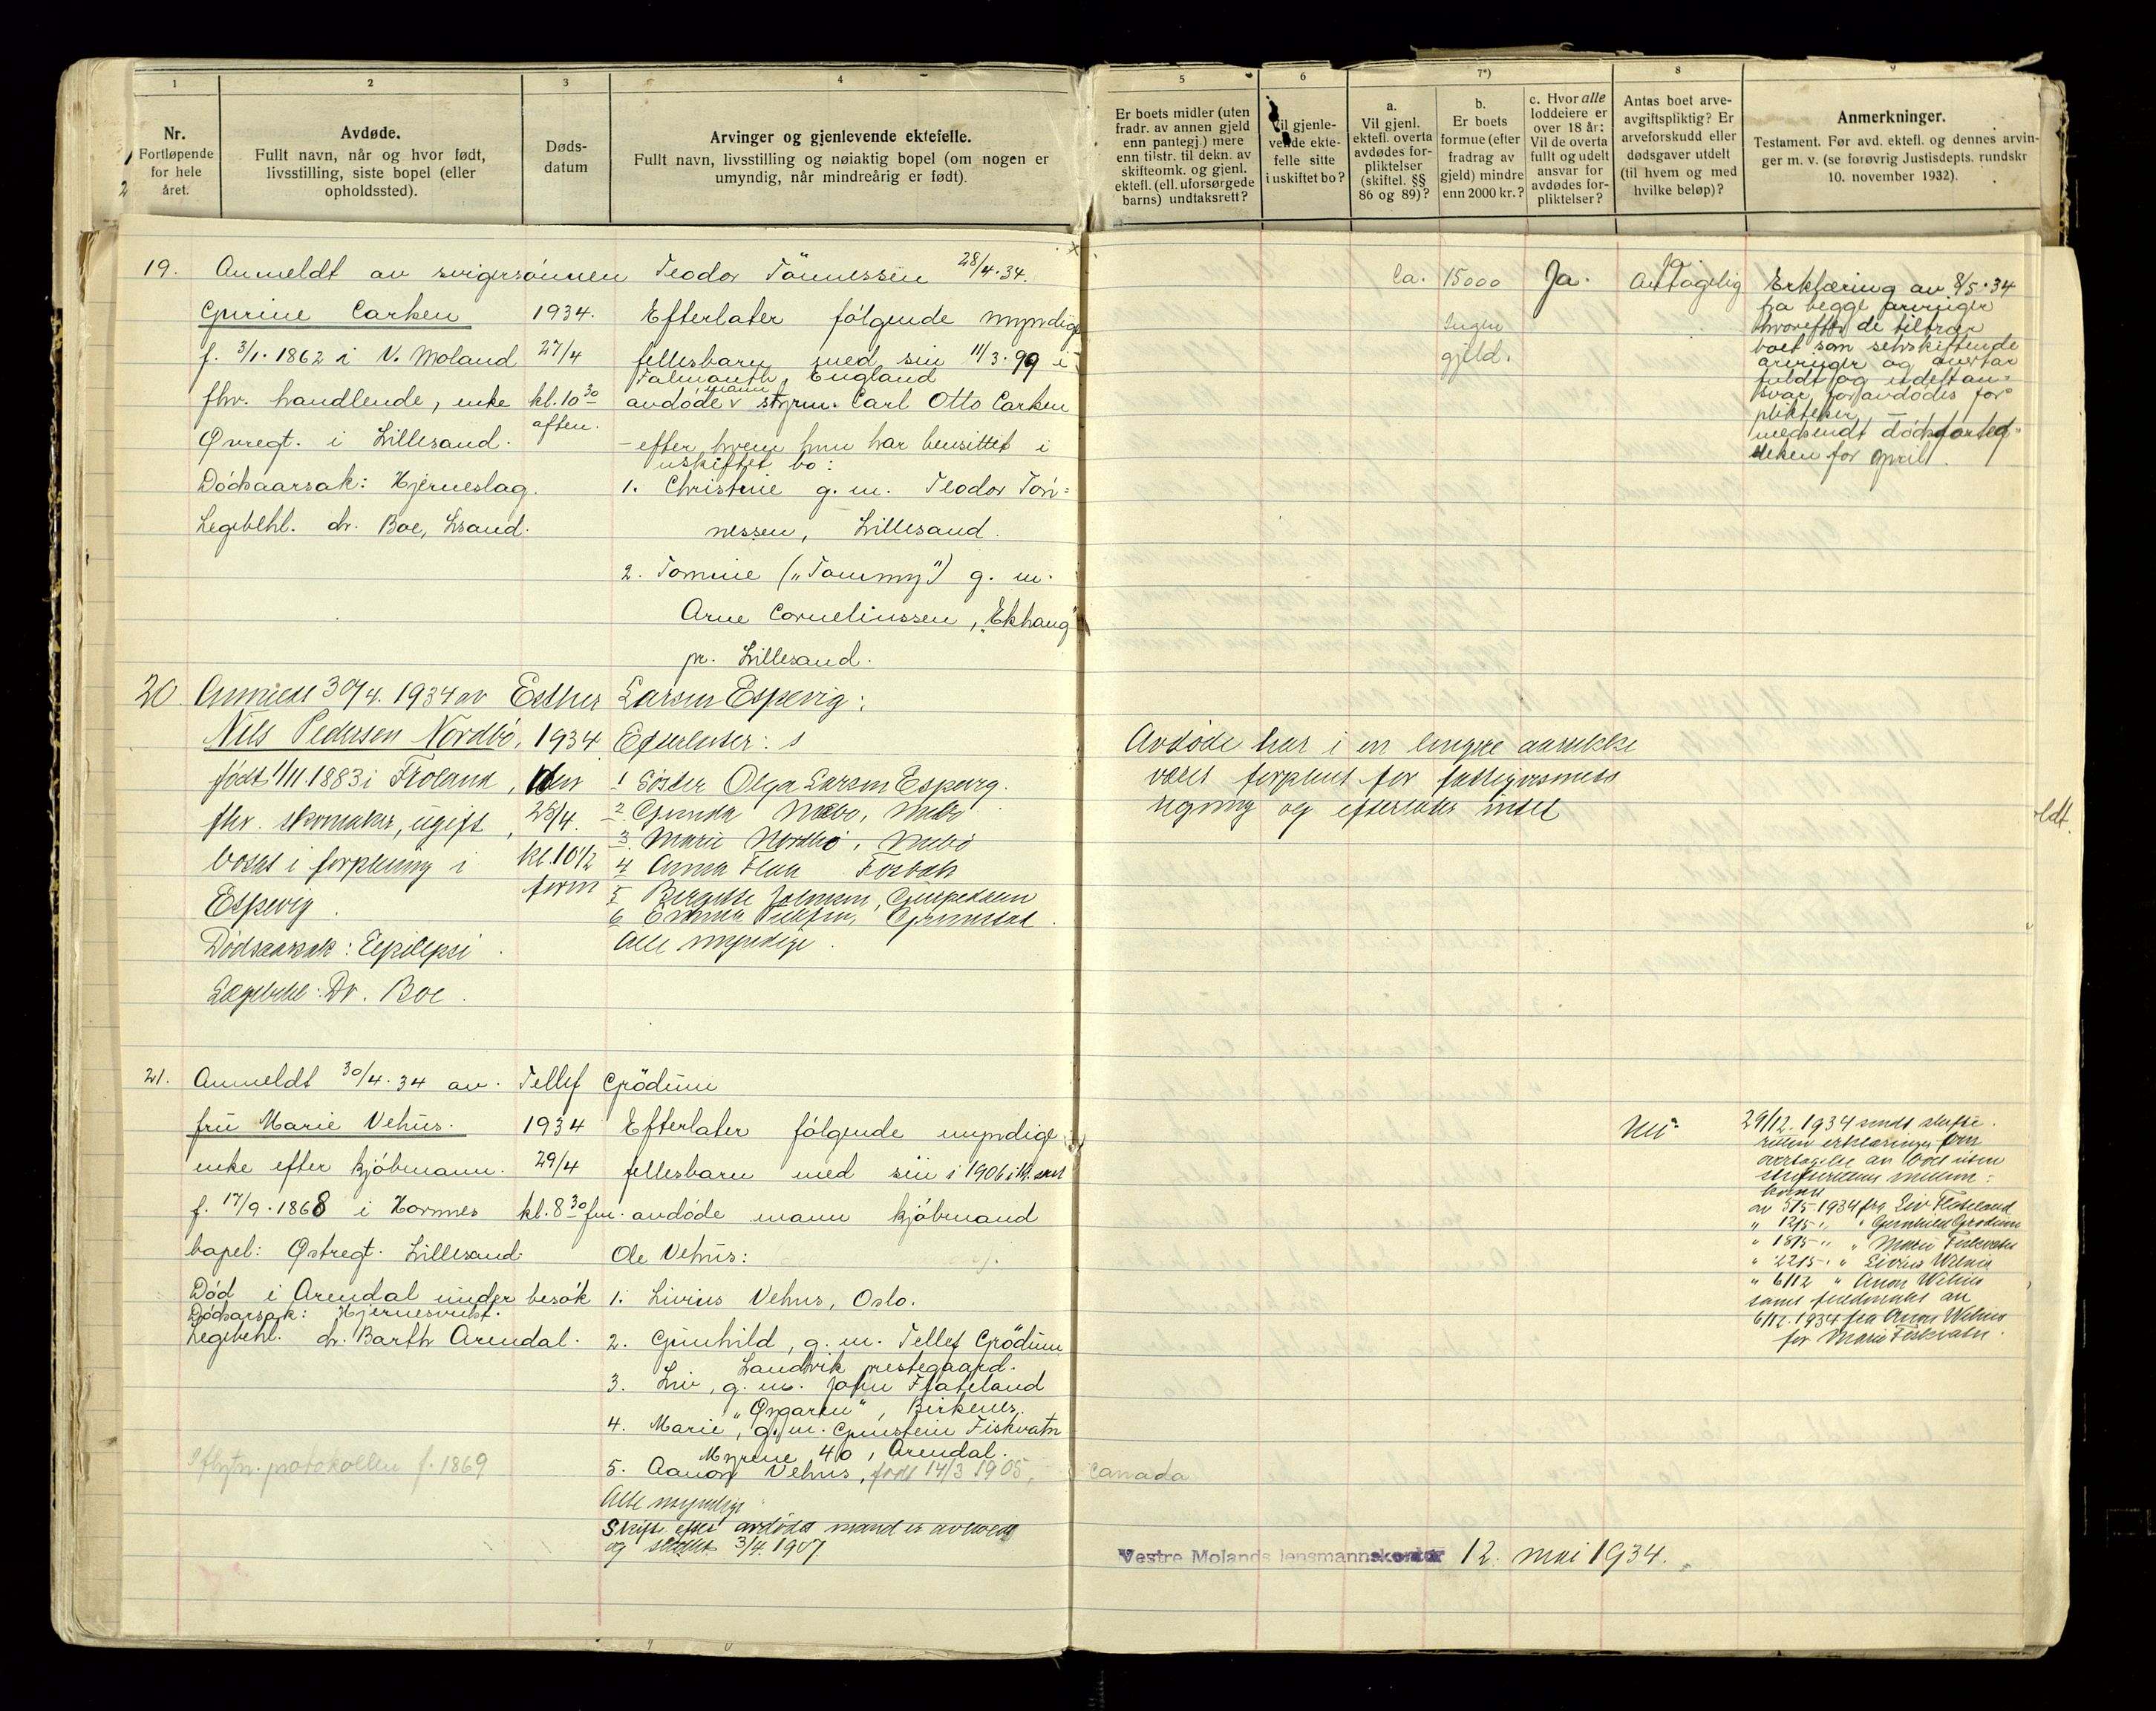 1
Nr.
Fortløpende
for hele
året.
2
Avdøde.
Fullt navn, når og hvor født,
livsstilling, siste bopel (eller
opholdssted).
3
Døds-
datum
4
Arvinger og gjenlevende ektefelle.
Fullt navn, livsstilling og nøiaktig bopel (om nogen er
umyndig, når mindreårig er født).
5
Er boets midler (uten
fradr. av annen gjeld
enn pantegj.) mere
enn tilstr. til dekn. av
skifteomk. og gjenl.
ektefl. (ell. uforsørgede
barns) undtaksrett?
6
Vil gjenle-
vende ekte-
felle sitte
i uskiftet bo?
7*)
a.
Vil gjenl.
ektefl. overta
avdødes for-
pliktelser
(skiftel. §§
86 og 89)?
b.
Er boets
formue (efter
fradrag av
gjeld) mindre
enn 2000 kr.?
c. Hvor alle
loddeiere er
over 18 år:
Vil de overta
fullt og udelt
ansvar for
avdødes for-
pliktelser?
8
Antas boet arve-
avgiftspliktig? Er
arveforskudd eller
dødsgaver utdelt
(til hvem og med
hvilke beløp)?
9
Anmerkninger.
Testament. Før avd. ektefl. og dennes arvin-
ger m. v. (se forøvrig Justisdepts. rundskr
10. november 1932).
19. Anmeldt av svigersönnen Teodor Tönnessen 28/4.34.
Gurine Carken
f. 3/1. 1862 i V. Moland
fhv. handlende, enke
Øvregt. i Lillesand.
Dödsaarsak: Hjerneslag.
Legebehl. dr. Boe, Lsand.
1934.
27/4
kl. 10 30
aften.
Efterlater følgende myndige
fellesbarn med sin 11/3.99 i
Falmouth, England
avdøde mann styrm. Carl Otto Carken
- efter hvem hun har hensittet i
uskiftet bo:
1. Christine g.m. Teodor Tön=
nessen, Lillesand.
2. Tomine („Tommy") g.m.
Arne Corneliussen, „Ekhaug"
pr. Lillesand.
Ca. 15000
Ingen
gjeld.
Ja.
Ja.
Antagelig
Erklæring av 8/5.34
fra begge arvinger
hvorefter de tiltrær
boet som selvskiftende
arvinger og overtar
fuldt og udelt an=
svar for avdödes for=
pliktelser. -
medsendt dödsforteg=
nelsen for april.
20. Anmeldt 30/4. 1934 av Esther Larsen Espevig:
Nils Pedersen Nordbö,
født 1/11. 1883 i Froland,
fhv. skomaker, ugift,
bosat i forpleining i
Espevig.
Dödsaarsak: Epilepsi.
Lægebehl: Dr. Boe.
1934
den
28/4.
kl. 10 1/2
form
Efterlater:
1 Söster Olga Larsen Espevig.
2. Gunda Mebö, Mebö
3. Marie Nordbö, Mebö
4 Anna Flaa Fosbæk
5 Bergitte Johnsen,
6 Emma Grimstad.
Alle myndige.
Avdöde har i en lengre aarrekke
været forpleiet for fattigvæsenets
regning og efterlater intet
21. Anmeldt 30/4.34 av. Tellef Grödum
fru Marie Vehus.
enke efter kjöbmann.
f. 17/9. 1868 i Hornnes
bopel: Østregt. Lillesand.
Död i Arendal under besök
Dödsarsak: Hjernesvulst.
Legebehl. dr. Barth Arendal.
1934
29/4
kl. 8 30 fm.
Efterlater følgende myndige
fellesbarn med sin i 1906 i
avdøde mann kjöbmand
Ole Vehus:
1. Livius Vehus, Oslo.
2. Gunhild, g.m. Tellef Grödum
Landvik prestegaard.
3. Liv, g.m. John Flateland
„Øygaren", Birkenes.
4. Marie, g.m. Gunstein Fiskvatn
Myrene 40, Arendal.
5. Aanon Vehus, født 14/3 1905, Canada
Alle myndige
Skifte efter avdødes mand er avholdt
og sluttet 3/4. 1907.
protokollen f. 1869
Nei
29/12. 1934 sendt skifte=
retten erklæringer om
overtagelse av boet uten
skifterettens mellom=
komst
av 5/5 1934 fra Liv Flateland
" 12/5 " " Gunhild Grödum
" 18/5 " " Marie Fiskvatn
" 22/5 " " Livius Vehus
" 6/12 " Anon Vehus
samt fuldmakt av
6/12. 1934 fra Anon Vehus
for Marie Fiskvatn.
Vestre Molands lensmannskontor 12. mai 1934.
ldt.